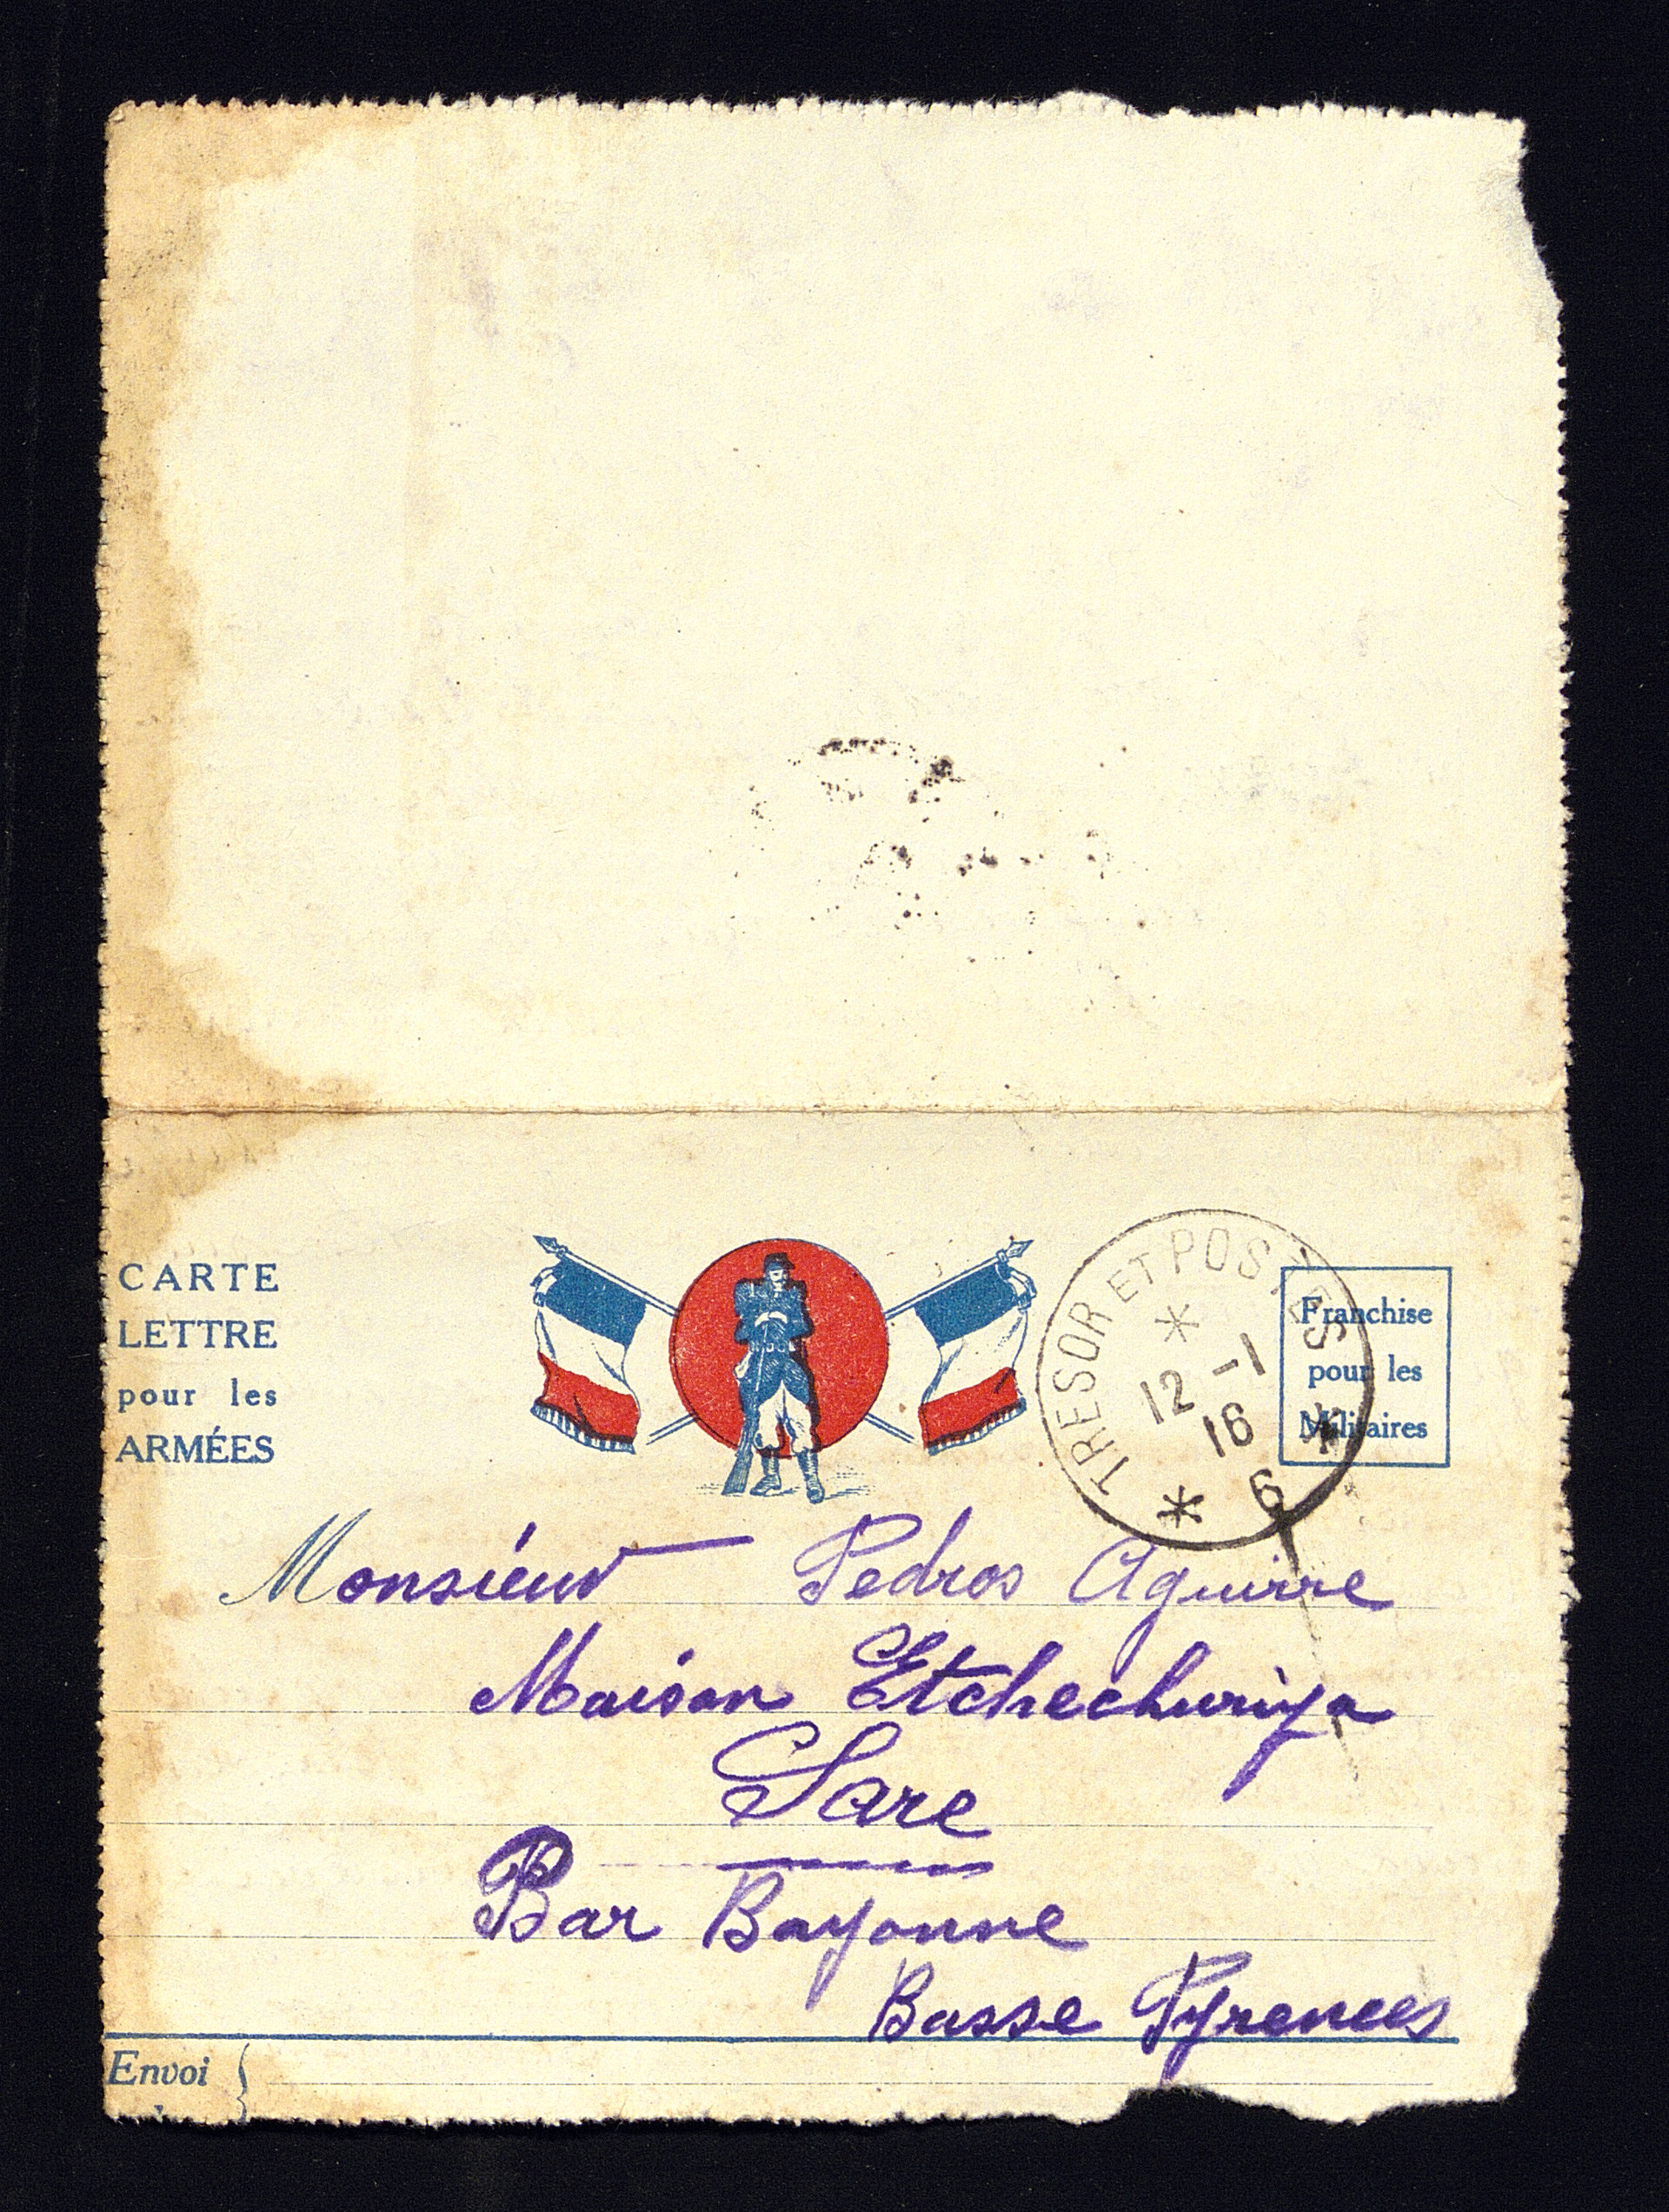 CARTE
LETTRE
pour les
ARMÉES
TRESOR ET POSTES
12 -1
16
6
Franchise
pour les
Militaires
Monsieur Pedros Aguirre
Maison Etchechuriya
Sare
Bar Bayonne
Basse Pyrenees
Envoi